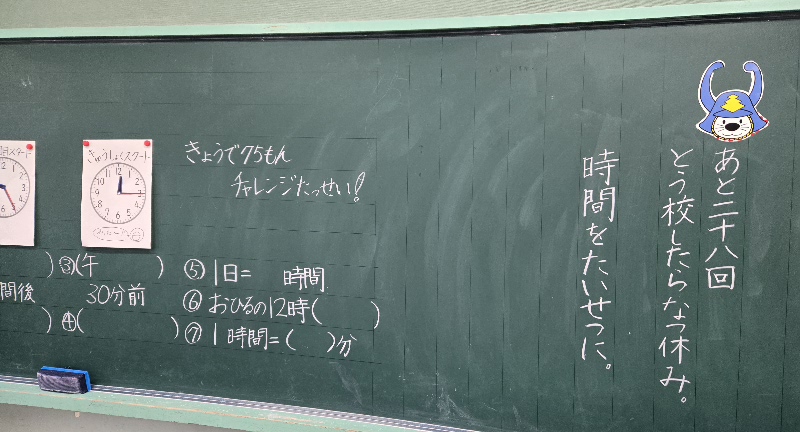 あと二十八回
とう校したらなつ休み。
時間をたいせつに。
きょうで75もん
チャレンジたっせい!
きゅうしょくスタート
スタート
)③(午 )
間後 30分前
)④( )
⑤1日= 時間
⑥おひるの12時( )
⑦1時間=( )分